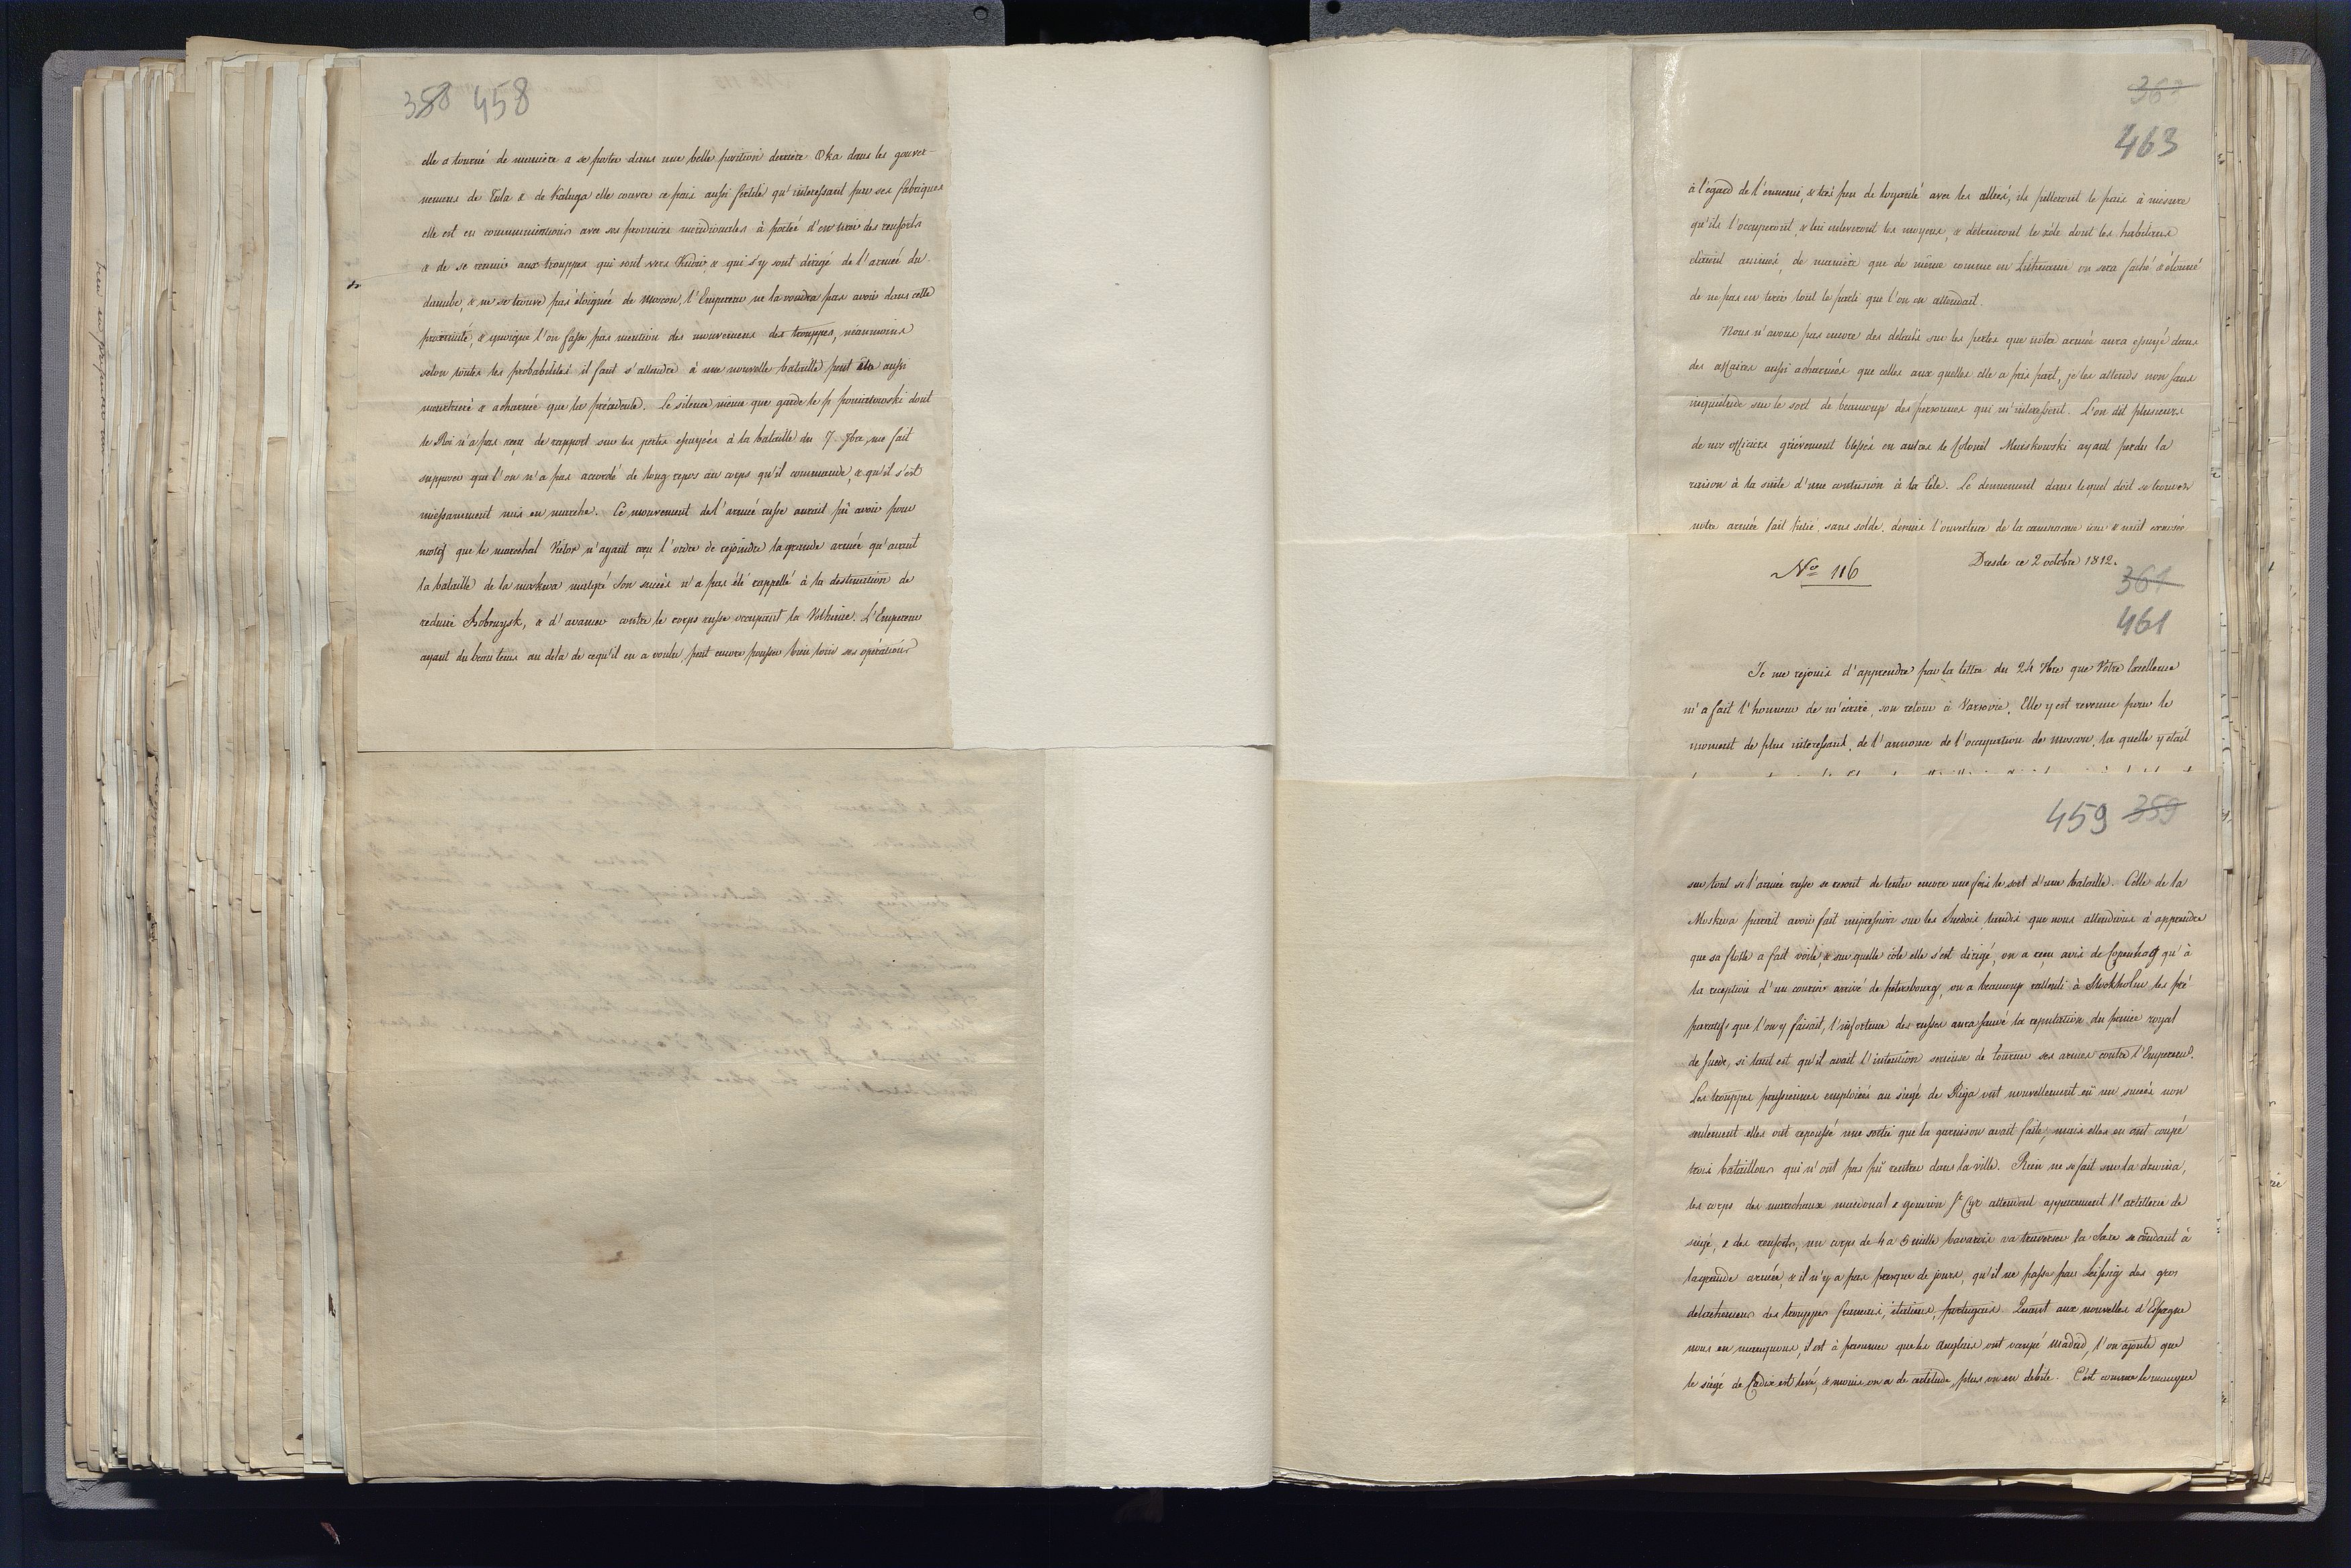 358 458
elle a tourné de manière a se porter dans une belle position derriere Oka dans les gouver-
nemens de Tula & de Kaluga elle couvre ce pais aussi fertile qu'interessant par ses fabriques
elle est en communications avec ses provinces meridionales à portée d'en tirer des renforts
& de se reunir aux trouppes qui sont vers Kiovie & qui s'y sont dirigé de l'armée du
danube, & ne se trouve pas éloignée de Moscou, l'Empereur ne la voudra pas avoir dans cette
proximité, & quoique l'on fasse pas mention des mouvemens des trouppes, néanmoins
selon toutes les probabilités il faut s'attendre à une nouvelle bataille peut être aussi
meurtriere & acharnée que la précedente. Le silence même que garde le p poniatowski dont
le Roi n'a pas reçu de rapport sur les pertes essuyées à la bataille du 7. 7bre, me fait
supposer que l'on n'a pas accordé de long repos au corps qu'il commande, & qu'il s'est
incessamment mis en marche. Ce mouvement de l'armée russe aurait pû avoir pour
motif que le marechal Victor n'ayant reçu l'ordre de rejoindre la grande armée qu'avant
la bataille de la moskwa malgré son succès n'a pas été rappellé à la destination de
reduire Bobruysk, & d'avancer contre le corps russe occupant la Volhinie. L'Empereur
ayant du beau tems au delà de ce qu'il en a voulu, peut encore pousser bien loin ses opérations
463
à l'égard de l'ennemi, & très peu de loyauté avec les alliés, ils pilleront le pais à mesure
qu'ils l'occuperont, & lui enleveront les moyens, & detruiront le zèle dont les habitans
étaient animés, de manière que de même comme en Lithuanie on sera faché & étonné
de ne pas en tirer tout le parti que l'on en attendait.
Nous n'avons pas encore des details sur les pertes que notre armée aura essuyé dans
des affaires aussi acharnées que celles aux quelles elle a pris part, je les attends non sans
inquiétude sur le sort de beaucoup des personnes qui m'interessent. L'on dit plusieurs
de nos officiers grièvement blessés en autres le Colonel Miaskowski ayant perdu la
raison à la suite d'une contusion à la tête. Le denuement dans lequel doit se trouver
notre armée fait pitié, sans solde, depuis l'ouverture de la campagne
No 116
Dresde ce 2 octobre 1812.
361
461
Je me rejouis d'apprendre par la lettre du 24 7bre que Votre Excellence
m'a fait l'honneur de m'écrire, son retour à Varsovie. Elle y est revenue pour le
moment de plus interessant, de l'annonce de l'occupation de Moscou, la quelle y était
459 359
sur tout si l'armée russe se resout de tenter encore une fois le sort d'une bataille. Celle de la
Moskwa parait avoir fait impression sur les Suedois tandis que nous attendions à apprendre
que sa flotte a fait voile, & sur quelle côte elle s'est dirigé, on a reçu avis de Copenhag qu'à
la reception d'un courier arrivé de petersbourg, on a beaucoup rallenti à Stockholm les pré
paratifs que l'on y faisait, l'infortune des russes aura sauvé la reputation du prince royal
de Suede, si tant est qu'il avait l'intention serieuse de tourner ses armes contre l'Empereur.
Les trouppes prussiennes emploiées au siegé de Riga ont nouvellement eû un succès non
seulement elles ont repoussé une sortie que la garnison avait faite, mais elles en ont coupé
trois bataillons qui n'ont pas pû rentrer dans la ville. Rien ne se fait sur la dzwina,
les corps des marechaux macdonal & gouvion St Cyr attendent apparement l'artillerie de
siegé, & des renforts, un corps de 4 a 5 mille bavarois va traverser la Saxe se rendant à
la grande armée, & il n'y a pas presque de jours, qu'il ne passe par Leipsig des gros
detachemens des trouppes francais, italiens, portugais. Quant aux nouvelles d'Espagne
nous en manquons, il est à presumer que les Anglais ont occupé Madrid, l'on ajoute que
le siegé de Cadix est levé, & moins on a de certitude, plus on en debite. C'est comme le manque